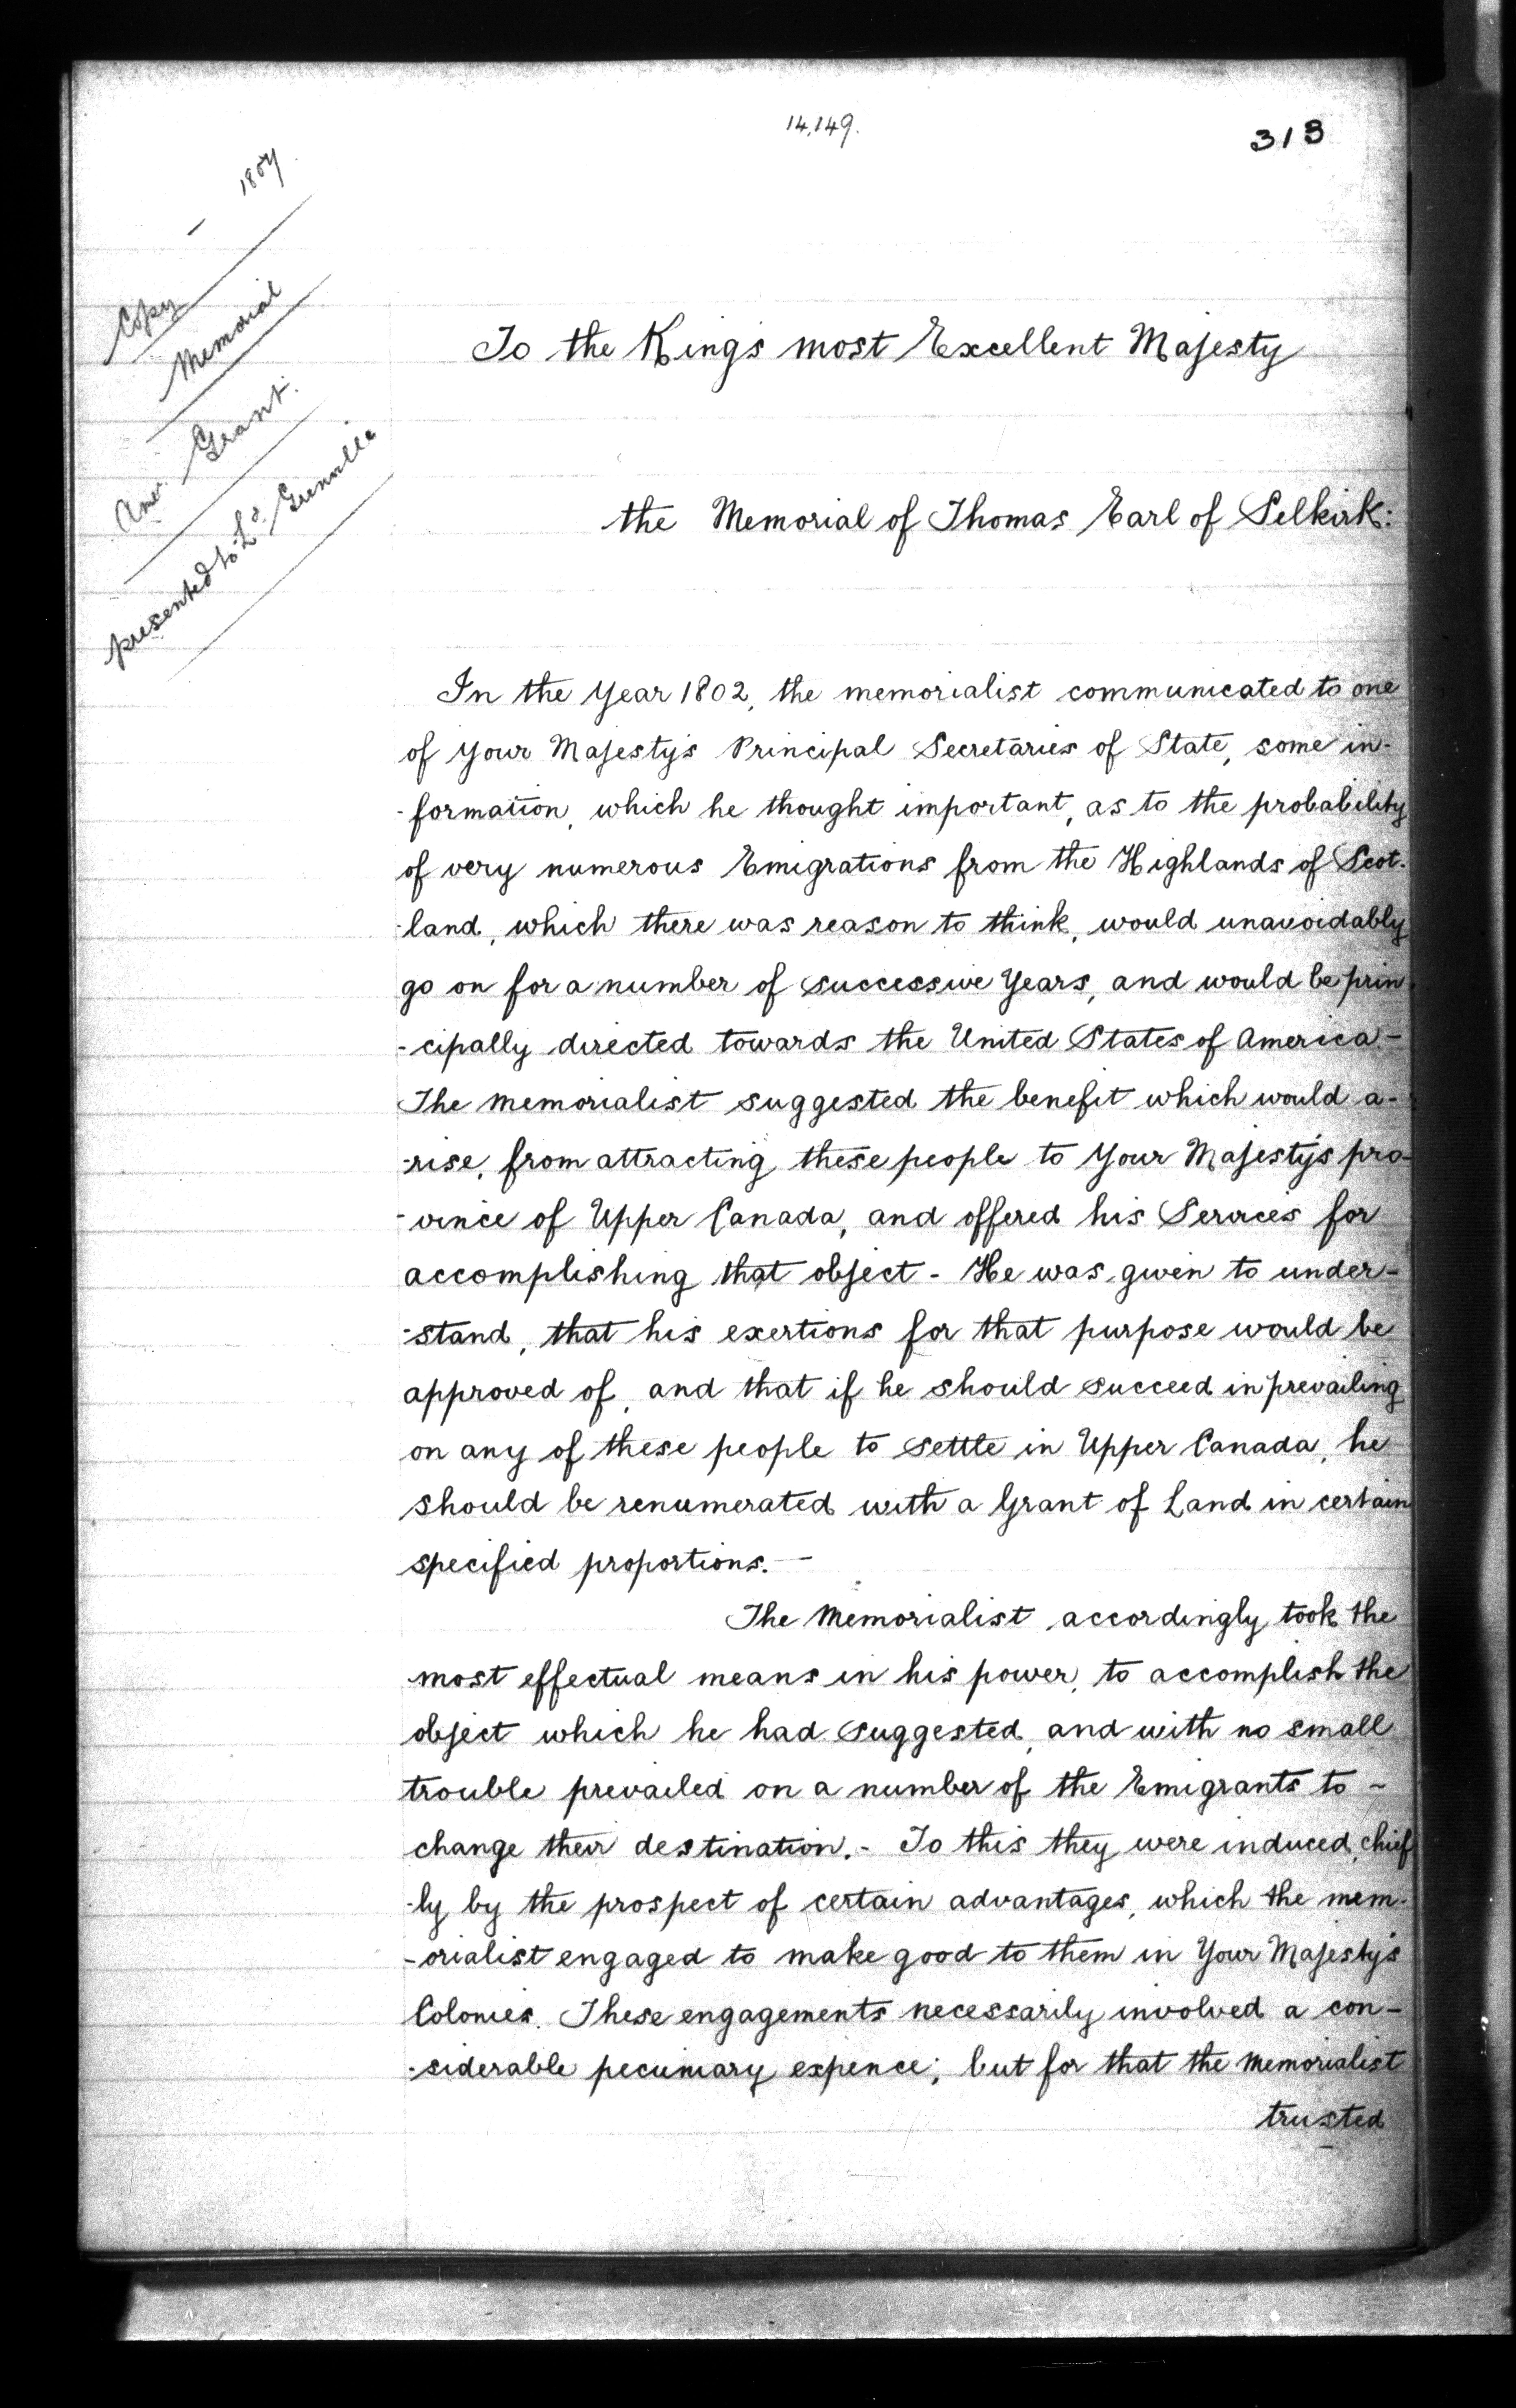 14,149.
313
Copy — 1807.
Memorial
Amn. Grant.
presented to Ld. Grenville
To the Kings most Excellent Majesty
the Memorial of Thomas Earl of Selkirk:
In the Year 1802, the memorialist communicated to one
of Your Majesty's Principal Secretaries of State, some in-
-formation, which he thought important, as to the probability
of very numerous Emigrations from the Highlands of Scot-
-land, which there was reason to think, would unavoidably
go on for a number of successive Years, and would be prin
-cipally directed towards the United States of America.-
The memorialist suggested the benefit which would a-
-rise, from attracting these people to Your Majesty's pro-
-vince of Upper Canada, and offered his Services for
accomplishing that object - He was given to under-
-stand, that his exertions for that purpose would be
approved of, and that if he should succeed in prevailing
on any of these people to settle in Upper Canada, he
should be renumerated with a Grant of Land in certain
specified proportions.—
The Memorialist accordingly took the
most effectual means in his power, to accomplish the
object which he had suggested, and with no small
trouble prevailed on a number of the Emigrants to -
change their destination.- To this they were induced, chief
-ly by the prospect of certain advantages, which the mem-
-orialist engaged to make good to them in Your Majesty's
Colonies. These engagements necessarily involved a con-
-siderable pecuniary expence; but for that the Memorialist
trusted